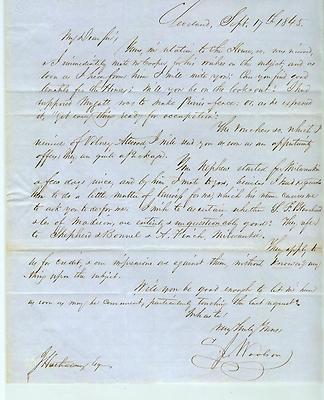 Cleveland, Sept. 17th 1845.
My Dear Sir;
Yours, in relation to the House, &c. was received,
& I immediately wrote Mr Cooper for his wishes on the subject, and as
soon as I hear from him I will write you. Can you find good
tenants for the House? Will you be on the lookout? I had
supposed was to make fence, or, as he expressed
it, "get every thing ready for occupation".
The Voucher &c, which I
received of Volney Atwood I will send you as soon as an opportunity
offers
Your Nephew started for Milwaukie
a few days since, and by him I wrote to you, because I had requested
him to do a little matter of for me, which his return
to ask you to do for me. I wish to ascertain whether
& Co of Madison, are entirely & unquestionably good? They refer
to Shepherd & Bonnel & A. Finch, Milwaukie.
They apply to
us for credit, & our impressions are against them without knowing any
thing upon the subject.
Will you be good enough to let me hear
as soon as may be convenient, particularly touching the last request?
In haste,
Very truly Yours
J. Hathaway Esq